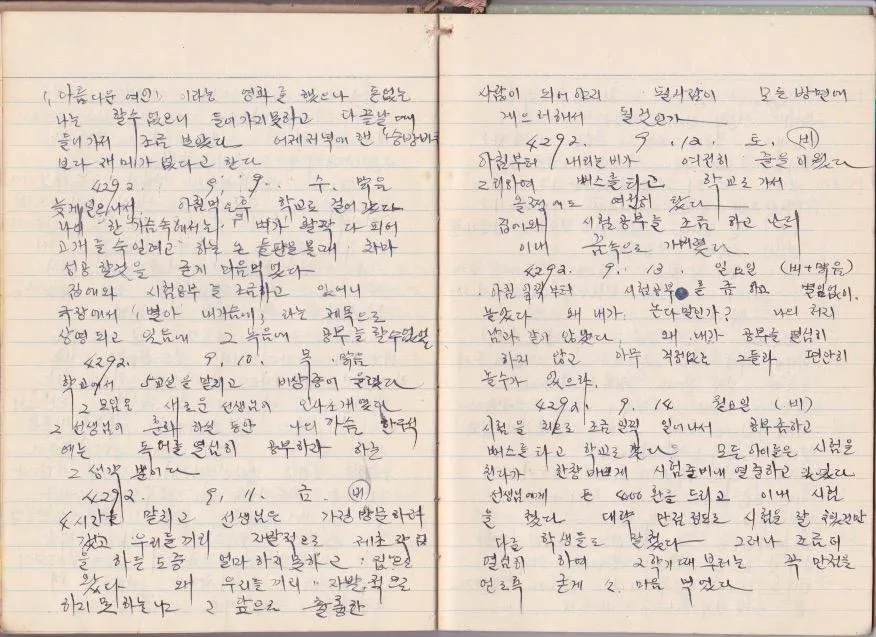 「아름다운 여인」 이라는 영화를 했으나 돈없는
나는 할수 없으니 들어가지 못하고 다 끝날 때에
들어가서 조금 보았다 어제저녁에 한
보다 재미가 없다고 한다
4292. 9. 9. 수. 맑음
늦게 일어나서 아침먹은후 학교로 걸어 갔다
나의 한 가슴속에서는 벼가 활짝 다 피어
고개를 숙일려고 하는 논 들판을 볼때
성공 할것을 굳게 마음먹었다
집에와 시험공부를 조금하고 있으니
극장에서 「별아 내가슴에」 라는 제목으로
상영되고 있음에 그 녹음에 공부를 할수없었
4292. 9. 10. 목. 맑음
학교에서 5교실을 말리고 비상종이 울렸다
그 모임은 새로운 선생님의 인사소개였다
그 선생님이 훈화 하실 동안 나의 가슴 한구석
에는 독어를 열심히 공부하라 하는
그 생각 뿐이다
4292. 9. 11. 금. (비)
4시간을 말리고 선생님은 가정방문하려
갔고 우리들끼리 자발적으로 제초작업
을 하든 도중 얼마 하지 못하고 집으로
왔다 왜 우리들끼리 "자발적으로
하지 못 하는냐고 그 앞으로 훌륭한
사람이 되어야 할사람이 모든 방면에
게으러해서 될것인가
4292. 9. 12. 토. (비)
아침부터 내리는 비가 여전히 끝을 이었다
그리하여 뻐스를 타고 학교로 가서
올적에도 여전히 탔다
집에와 시험공부를 조금 하고 난뒤
이내 꿈속으로 가버렸다
4292. 9. 13. 일요일 (비+맑음)
아침 일찍부터 시험공부를 좀 하고 별일없이
놀았다 왜 내가 논다말인가? 나의 처지
남과 같지 않았다. 왜 내가 공부를 열심히
하지 않고 아무 걱정없는 그들과 편안히
놀수가 있으랴.
4292. 9. 14 월요일 (비)
시험을 치르로 조금 일찍 일어나서 공부좀하고
뻐스를 타고 학교로 갔다 모든 아이들은 시험을
친다기 한창 바쁘게 시험준비에 열중하고 있었다
선생님에게 돈 4,000환을 드리고 이내 시험
을 쳤다 대략 만점 정도로 시험을 잘 쳤건만
다른 학생들도 잘쳤다 그러나 조금더
열심히 하여 2학기때 부터는 꼭 만점을
얻도록 굳게 마음 먹었다